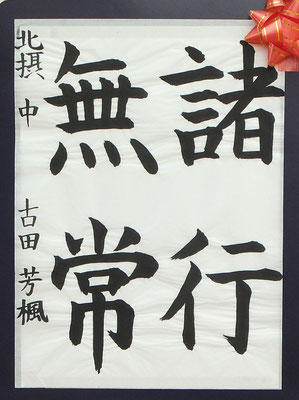 諸行
無常
北摂中 古田芳楓